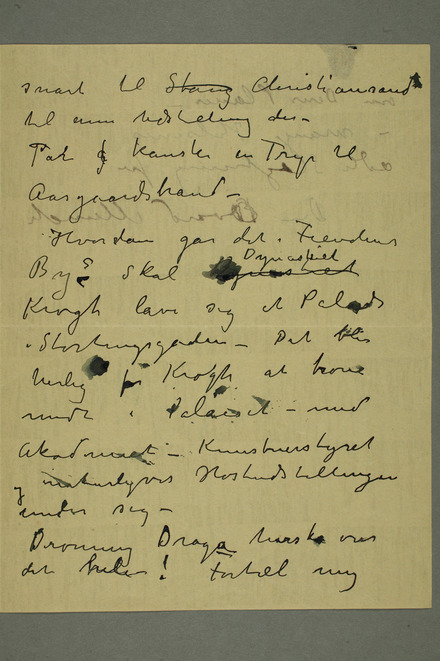 snart til Stavang Christianssand
til min Udstilling der –
Tak kanske en Tryp til
Aasgaardstrand –
Hvordan gaar det i Fiendens
By? Skal Dynastiet
Krogh lave sig et Palads
i Stortingsgaden – Det blir
herlig for Krogh at trone
midt i Palæet – med
Akademiet – Kunstnerstyret
og naturligvis Høstudstillingen
under sig –
Dronning Draga hersker over
det hele! Fortæl mig